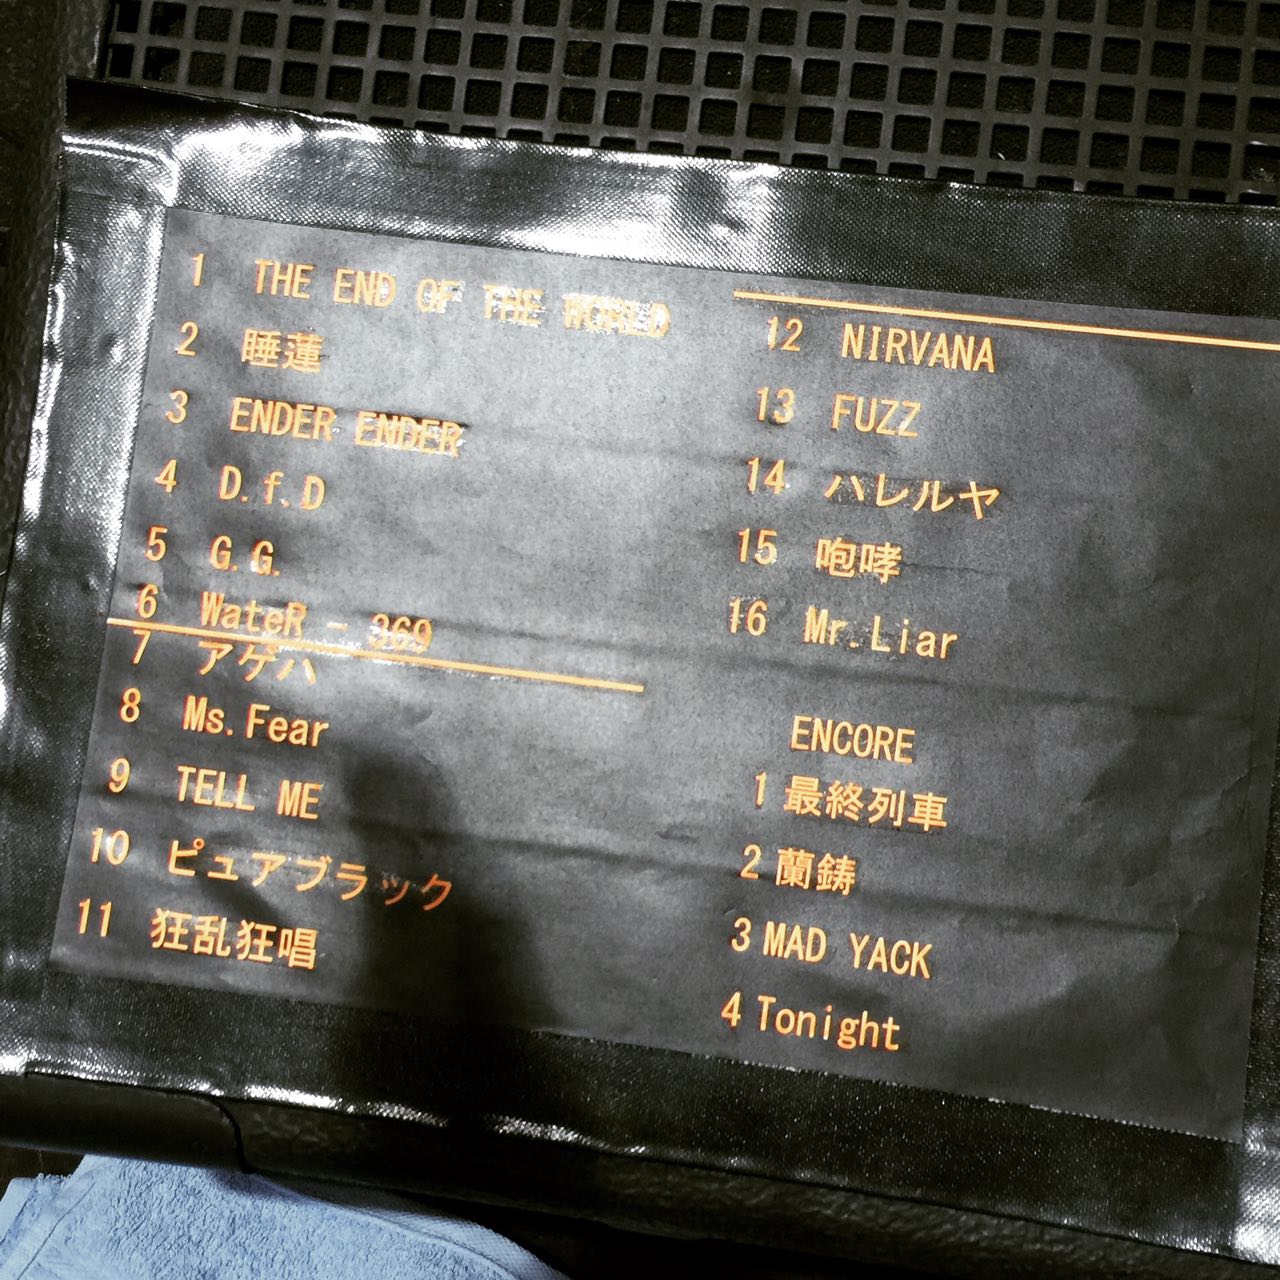 1 THE END OF THE WORLD
2 睡蓮
3 ENDER ENDER
4 D.f.D
5 G.G.
6 WateR - 369
7 アゲハ
8 Ms.Fear
9 TELL ME
10 ピュアブラック
11 狂乱狂唱
12 NIRVANA
13 FUZZ
14 ハレルヤ
15 咆哮
16 Mr.Liar
ENCORE
1 最終列車
2 蘭鋳
3 MAD YACK
4 Tonight